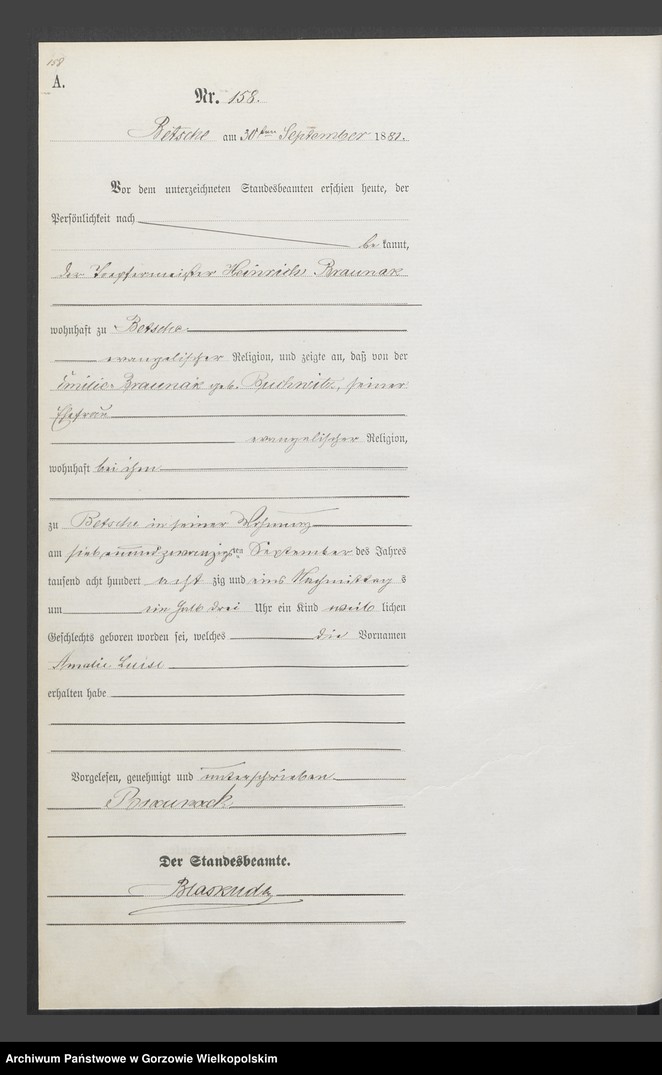 158
A.
Nr. 158.
Betsche am 30ten September 1881.
Vor dem unterzeichneten Standesbeamten erschien heute, der
Persönlichkeit nach
be kannt,
der Toepfermeister Heinrich Braunak
wohnhaft zu Betsche
evangelischer Religion, und zeigte an, daß von der
Emilie Braunak geb. Buchwitz, seiner
Ehefrau
evangelischer Religion,
wohnhaft bei ihm
zu Betsche in seiner Wohnung
am siebenundzwanzigsten September des Jahres
tausend acht hundert acht zig und eins Nachmittag s
um ein halb drei Uhr ein Kind weib lichen
Geschlechts geboren worden sei, welches die Vornamen
Amalie Luise
erhalten habe
Vorgelesen, genehmigt und unterschrieben
Braunack
Der Standesbeamte.
Archiwum Państwowe w Gorzowie Wielkopolskim